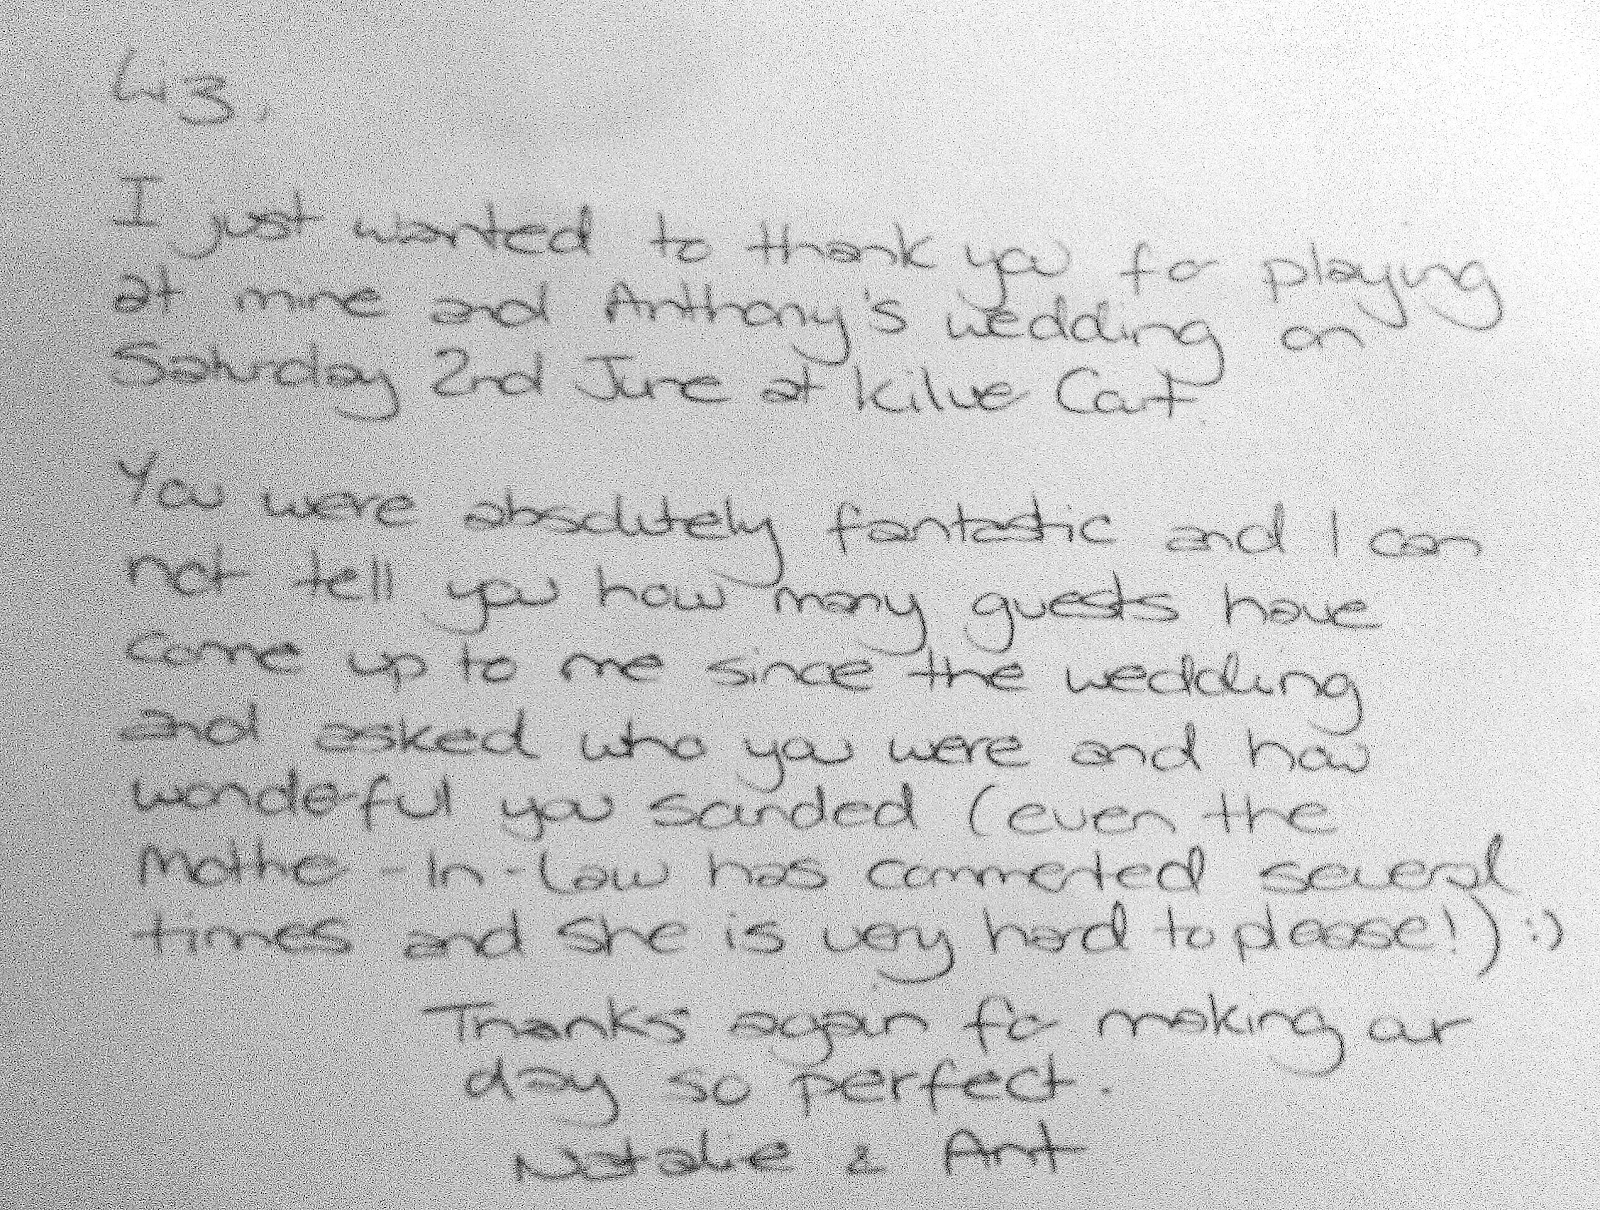 Liz,
I just wanted to thank you for playing
at mine and Anthony's wedding on
Saturday 2nd June at Kilve Court
You were absolutely fantastic and I can
not tell you how many guests have
come up to me since the wedding
and asked who you were and how
wonderful you sounded (even the
Mother-In-Law has commented several
times and she is very hard to please!) :)
Thanks again for making our
day so perfect.
Natalie & Ant